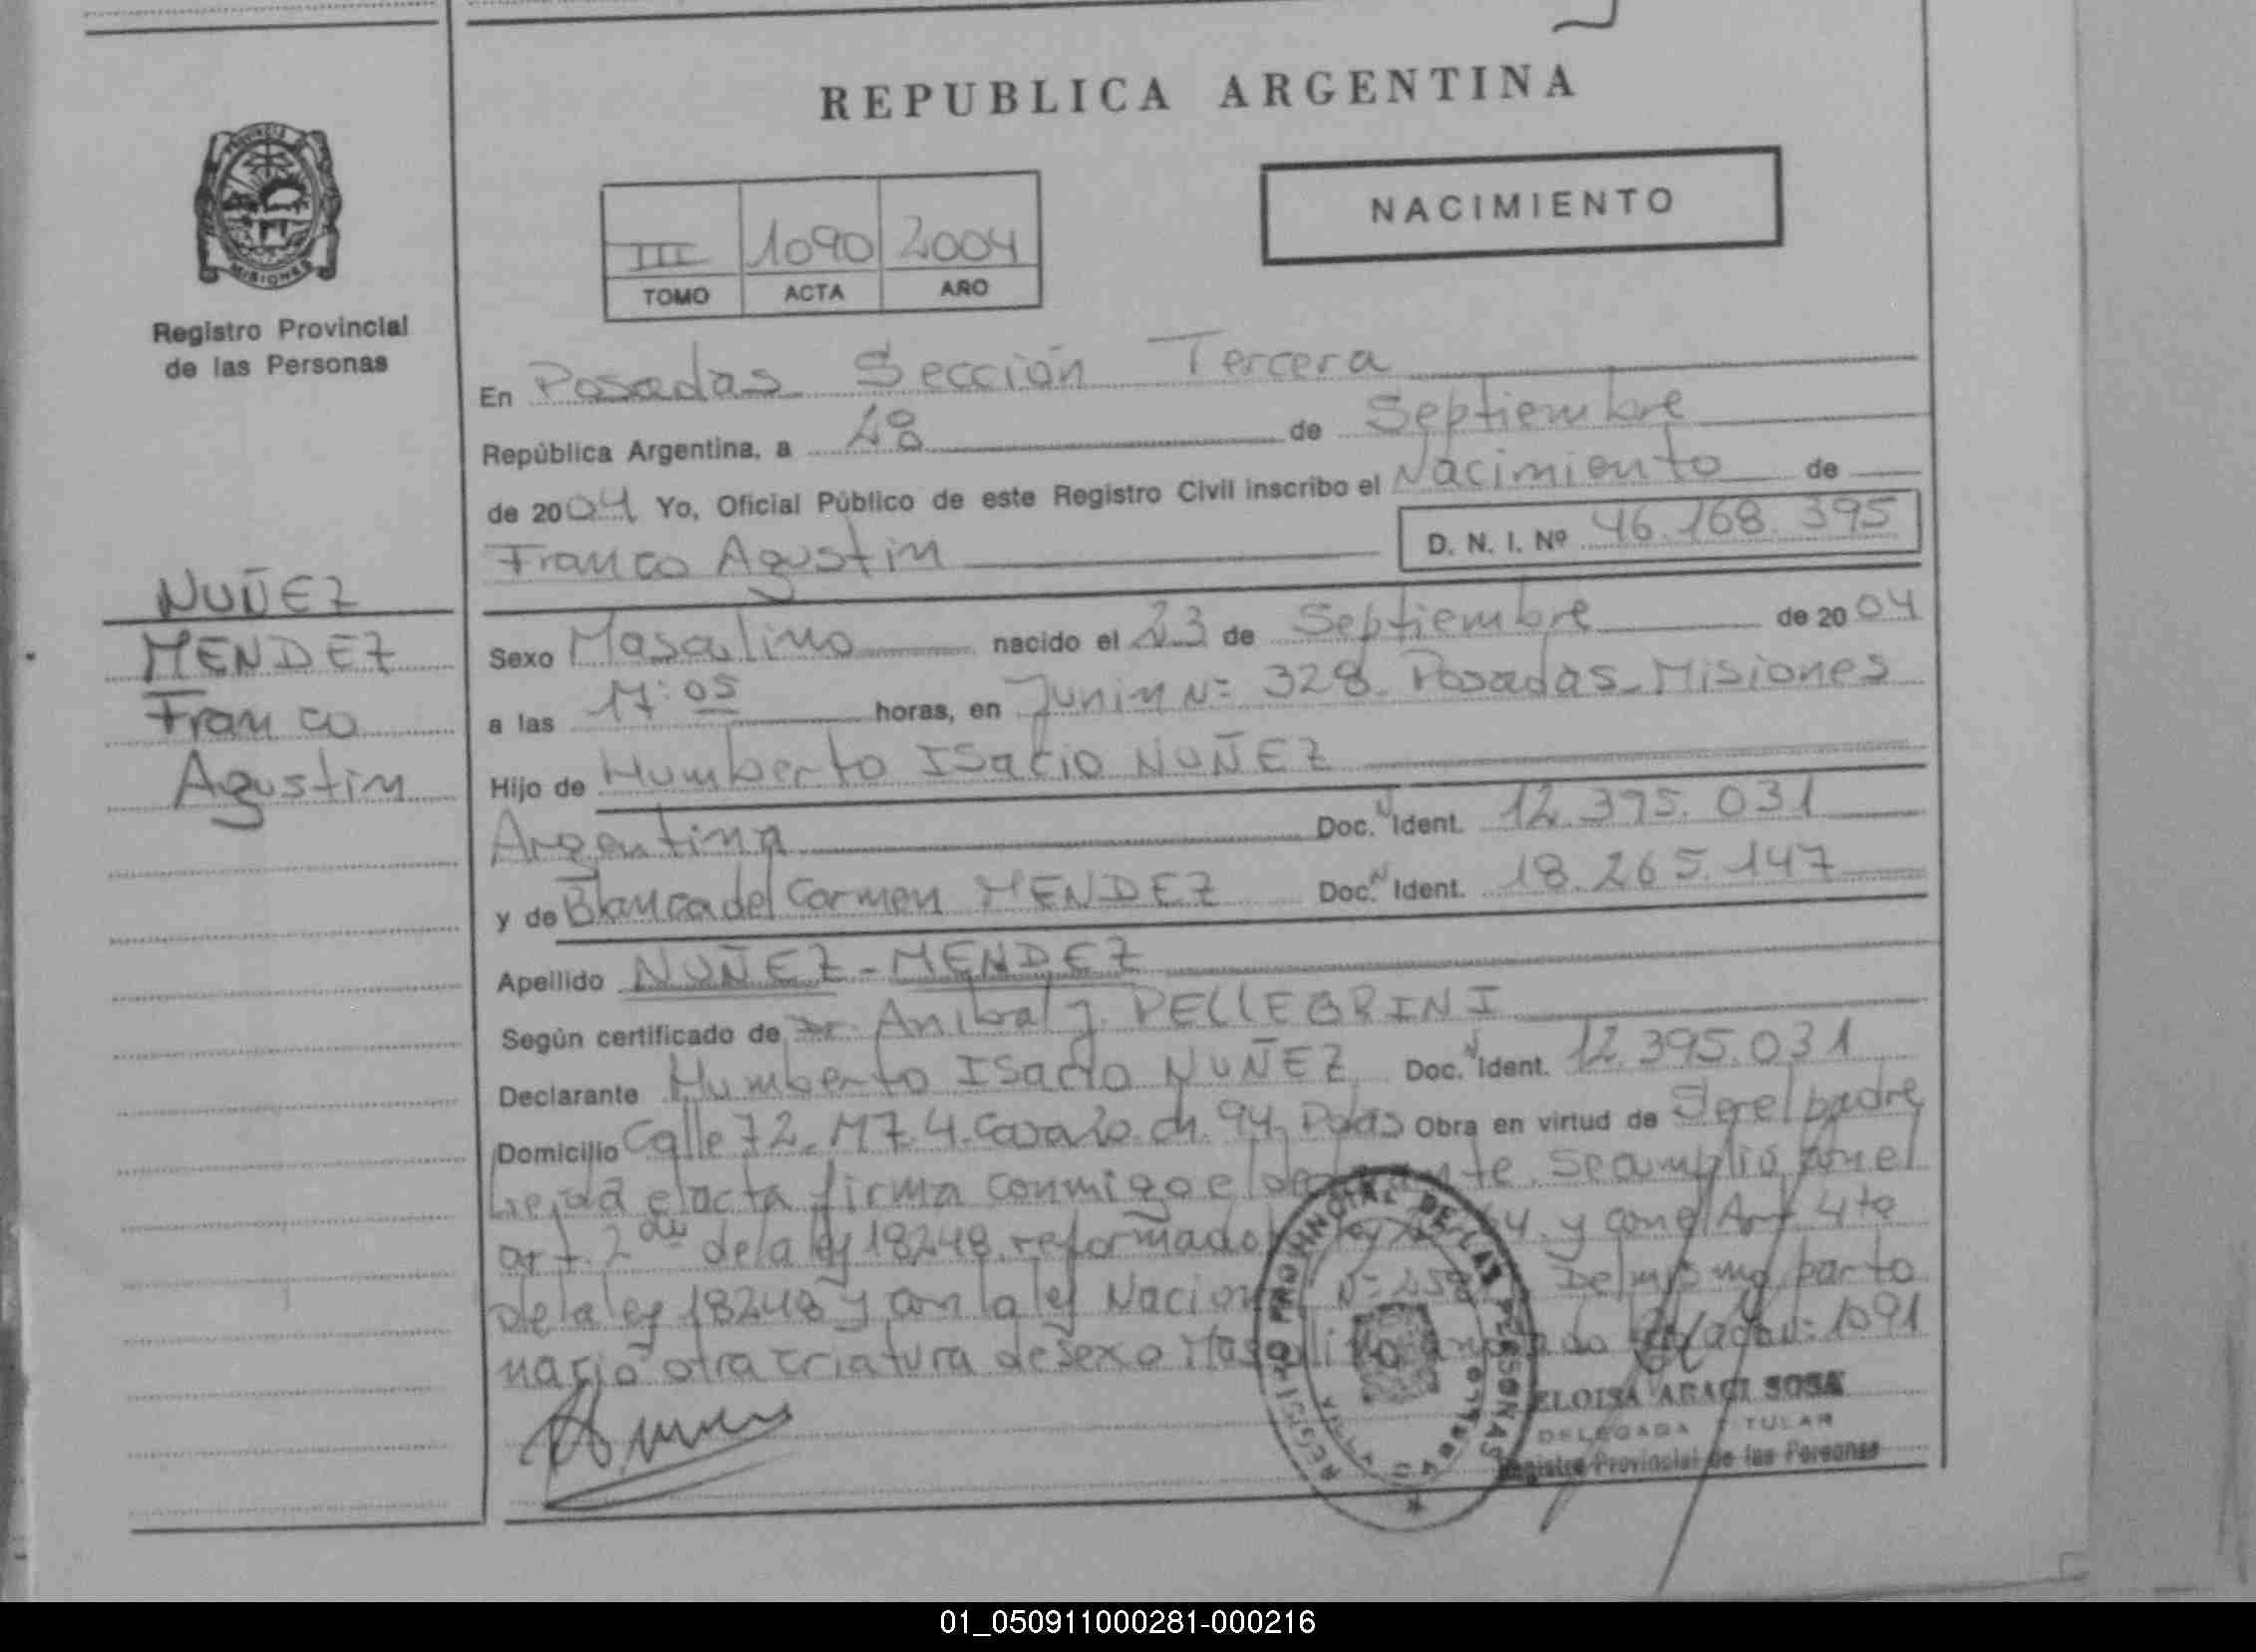 REPUBLICA ARGENTINA
PROVINCIA
MISIONES
Registro Provincial
de las Personas
NACIMIENTO
III 1090 2004
TOMO ACTA AÑO
En Posadas Sección Tercera
República Argentina, a 28 de Septiembre
de 2004 Yo, Oficial Público de este Registro Civil inscribo el Nacimiento de
Franco Agustin D. N. I. Nº 46.168.395
NUÑEZ
MENDEZ
Franco
Agustin
Sexo Masculino nacido el 23 de Septiembre de 2004
a las 17:05 horas, en Junin Nº 328 Posadas Misiones
Hijo de Humberto Isacio NUÑEZ
Argentina Doc. Ident. 12.395.031
y de Blanca del Carmen MENDEZ Doc. Ident. 18.265.147
Apellido NUÑEZ - MENDEZ
Según certificado de Dr. Anibal J. PELLEGRINI
Declarante Humberto Isacio NUÑEZ Doc. Ident. 12.395.031
Domicilio Calle 72. MZ. 4. Casa 20. ch. 94. Pdas Obra en virtud de Ser el padre
Leida el acta firma conmigo el se cumplió con el
art. 2do de la ley 18248 reformado y con el Art 4to
de la ley 18248 y con la ley Nacional Nº Del mismo parto
nació otra criatura de sexo Masculino 1091
REGISTRO PROVINCIAL DE LAS PERSONAS
ELOISA ARACI SOSA
DELEGADA TITULAR
Registro Provincial de las Personas
01_050911000281-000216